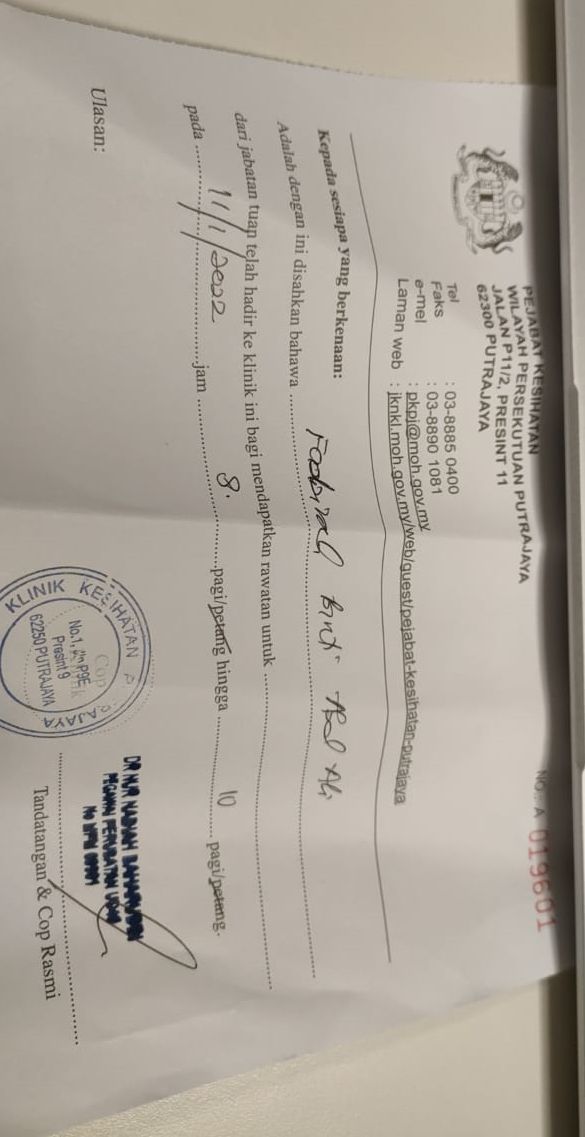 NO.: A 019601
PEJABAT KESIHATAN
WILAYAH PERSEKUTUAN PUTRAJAYA
JALAN P11/2, PRESINT 11
62300 PUTRAJAYA
Tel : 03-8885 0400
Faks : 03-8890 1081
e-mel : pkpj@moh.gov.my
Laman web : jknkl.moh.gov.my/web/guest/pejabat-kesihatan-putrajaya
Kepada sesiapa yang berkenaan:
Adalah dengan ini disahkan bahawa
dari jabatan tuan telah hadir ke klinik ini bagi mendapatkan rawatan untuk
pada 11/1/2022 jam 8. pagi/petang hingga 10 pagi/petang.
Ulasan:
KLINIK KESIHATAN
No.1, P9E
Presint 9
62250 PUTRAJAYA
Tandatangan & Cop Rasmi